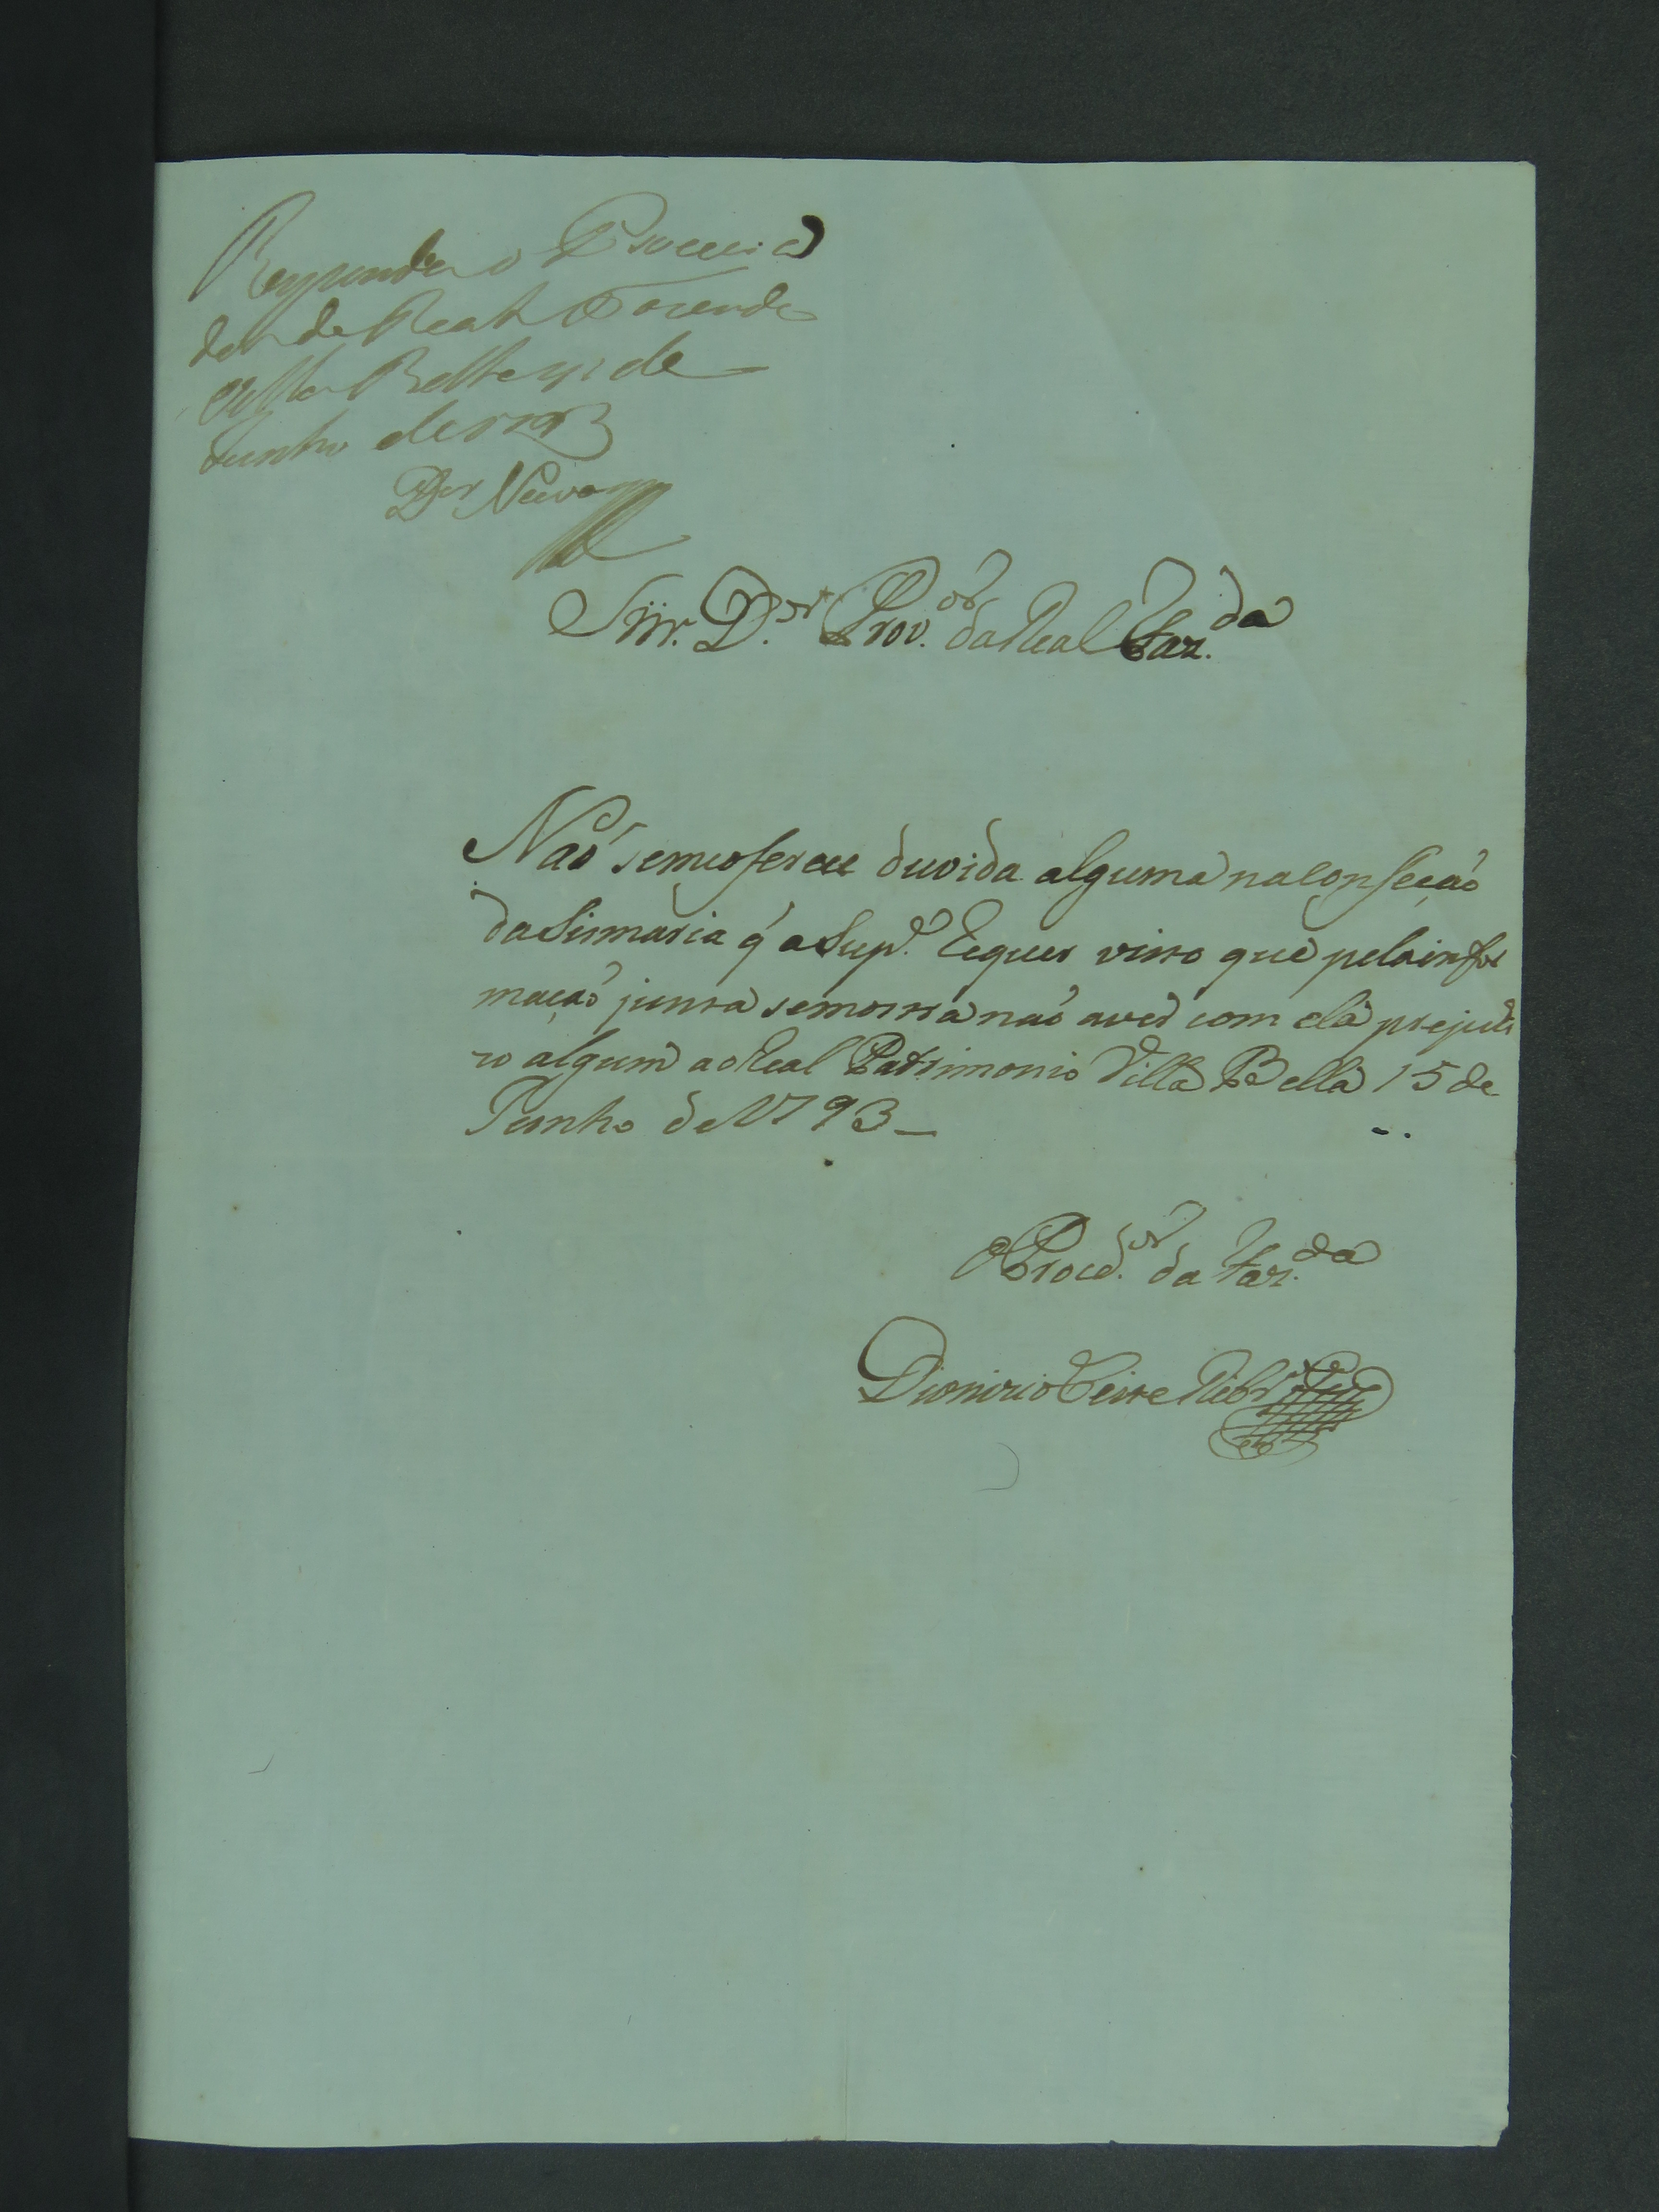 Responda o Procura
dor da Real Fazenda
Villa Bella de
Junho de 1793
Dor Neiva
Snr. D.or Prov.or da Real Faz.da
Naõ seme oferece duvida alguma na Confecçaõ
da Sismaria q' a Sup.e Requer visto que pela infor
maçaõ junta semostra naõ aver com ela prejui
zo algum ao Real Patrimonio Villa Bella 15 de
Junho de 1793_
O Procd.or da Faz.da
Dionizio